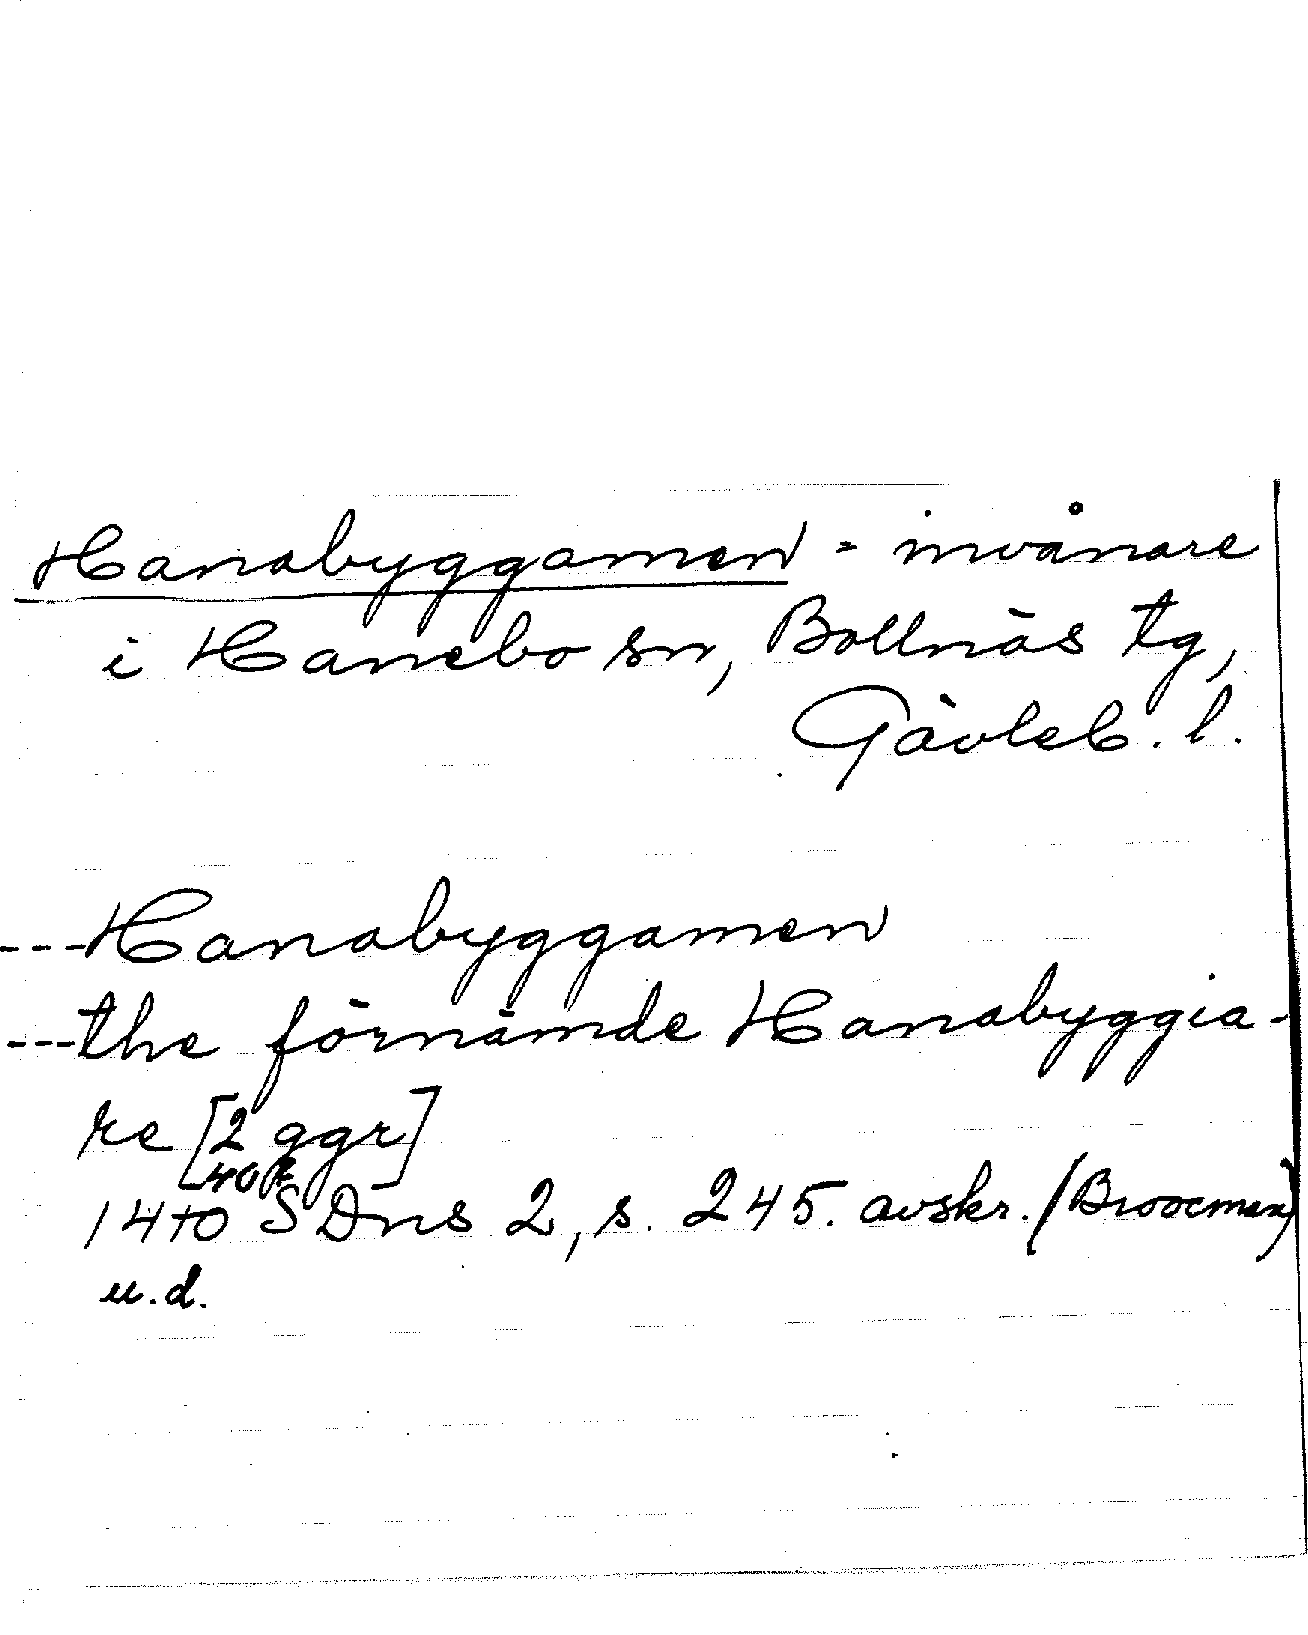 Hanabyggamen = invånare
i Hanebo sn, Bollnäs tg,
Gävleb. l.
---Hanabyggamen
---the förnämde Hanabyggia-
re [2 ggr]
1440 SDns 2, s. 245. avskr. (Broocman)
u.d.